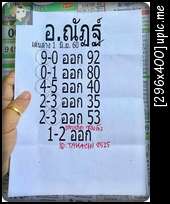 อ.ณัฏฐ์
เล่นกลาง 1 มิ.ย. 60
9-0 ออก 92
0-1 ออก 80
4-5 ออก 40
2-3 ออก 35
2-3 ออก 53
1-2 ออก
ID: TAMACHI 8525
[296x400] upic.me